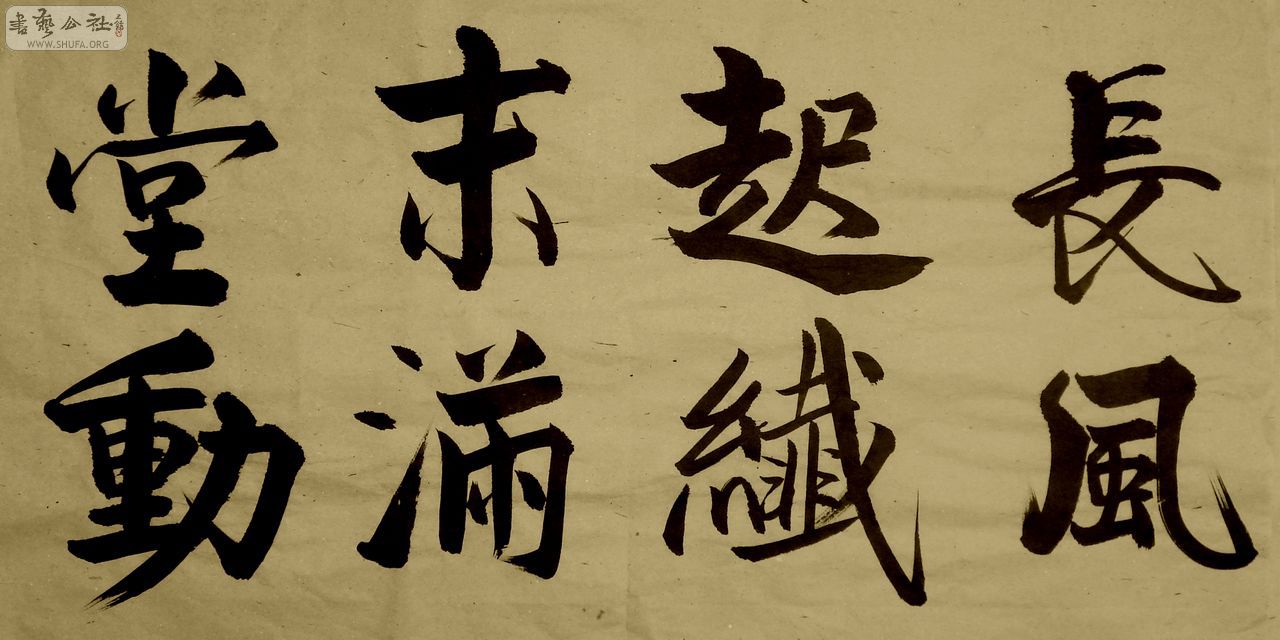 長風
起纖
末滿
堂動
書藝公社
WWW.SHUFA.ORG